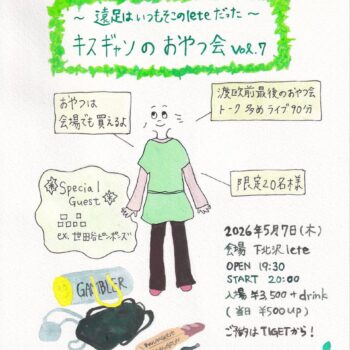 ～ 遠足はいつもそこのleteだった ～
キスギャソの おやつ会 vol.7
おやつは
会場でも買えるよ
渡欧前最後のおやつ会
トーク多め ライブ90分
限定20名様
Special
Guest
品品
ex. 世田谷ピンポンズ
2026年5月7日(木)
会場 下北沢lete
OPEN 19:30
START 20:00
入場 ¥3,500+drink
(当日 ¥500up)
ご予約はTIGETから!
GAMBLER